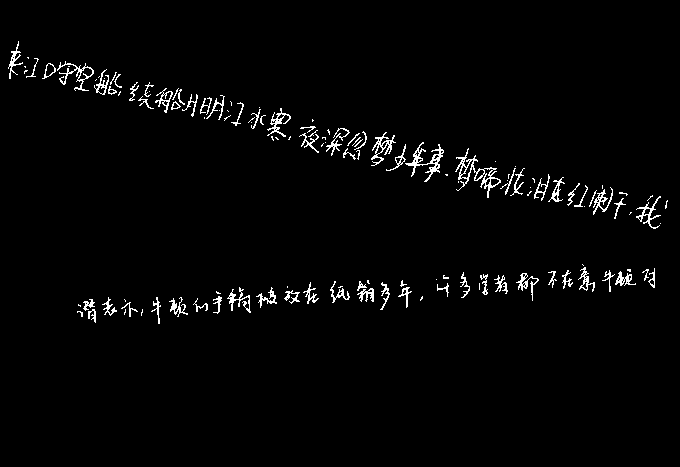 来江口守空船,绕船月明江水寒,夜深忽梦少年事,梦啼妆泪红阑干,我
谱表示,牛顿的手稿被放在纸箱多年,许多学者都不在意牛顿对